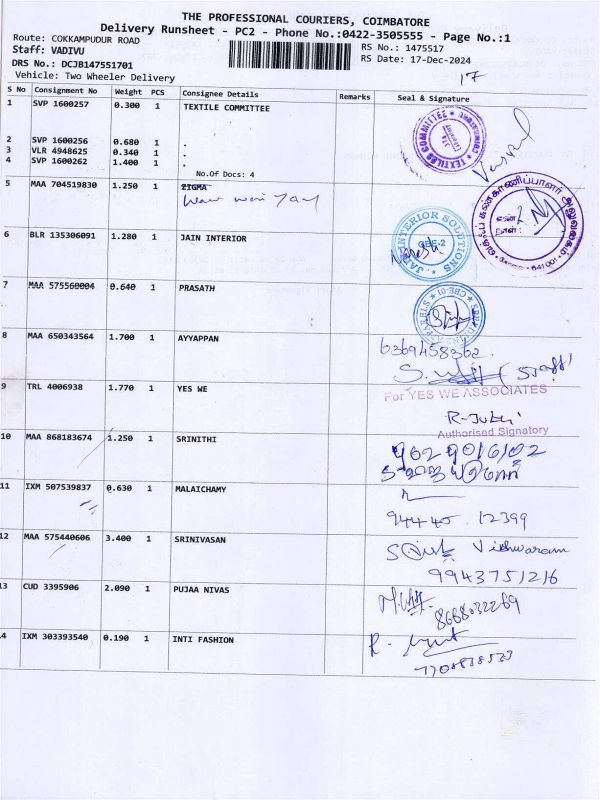 THE PROFESSIONAL COURIERS, COIMBATORE
Delivery Runsheet - PC2 - Phone No.:0422-3505555 - Page No.:1
Route: COKKAMPUDUR ROAD
RS No.: 1475517
Staff: VADIVU
RS Date: 17-Dec-2024
DRS No.: DCJB147551701
Vehicle: Two Wheeler Delivery
17
S No Consignment No Weight PCS Consignee Details Remarks Seal & Signature
1 SVP 1600257 0.300 1 TEXTILE COMMITTEE
TEXTILES COMMITTEE
2 SVP 1600256 0.680 1 .
3 VLR 4948625 0.340 1 .
4 SVP 1600262 1.400 1 .
No.Of Docs: 4
5 MAA 704519830 1.250 1 ZIGMA
எண்
நாள்:
641 001
6 BLR 135306091 1.280 1 JAIN INTERIOR
JAIN INTERIOR SOLUTIONS
CBE-2
7 MAA 575560004 0.640 1 PRASATH
CBE-01
8 MAA 650343564 1.700 1 AYYAPPAN
6369458362
(Staff)
9 TRL 4006938 1.770 1 YES WE
For YES WE ASSOCIATES
Authorised Signatory
10 MAA 868183674 1.250 1 SRINITHI
11 IXM 507539837 0.630 1 MALAICHAMY
94440 12399
12 MAA 575440606 3.400 1 SRINIVASAN
9943751216
13 CUD 3395906 2.090 1 PUJAA NIVAS
14 IXM 303393540 0.190 1 INTI FASHION